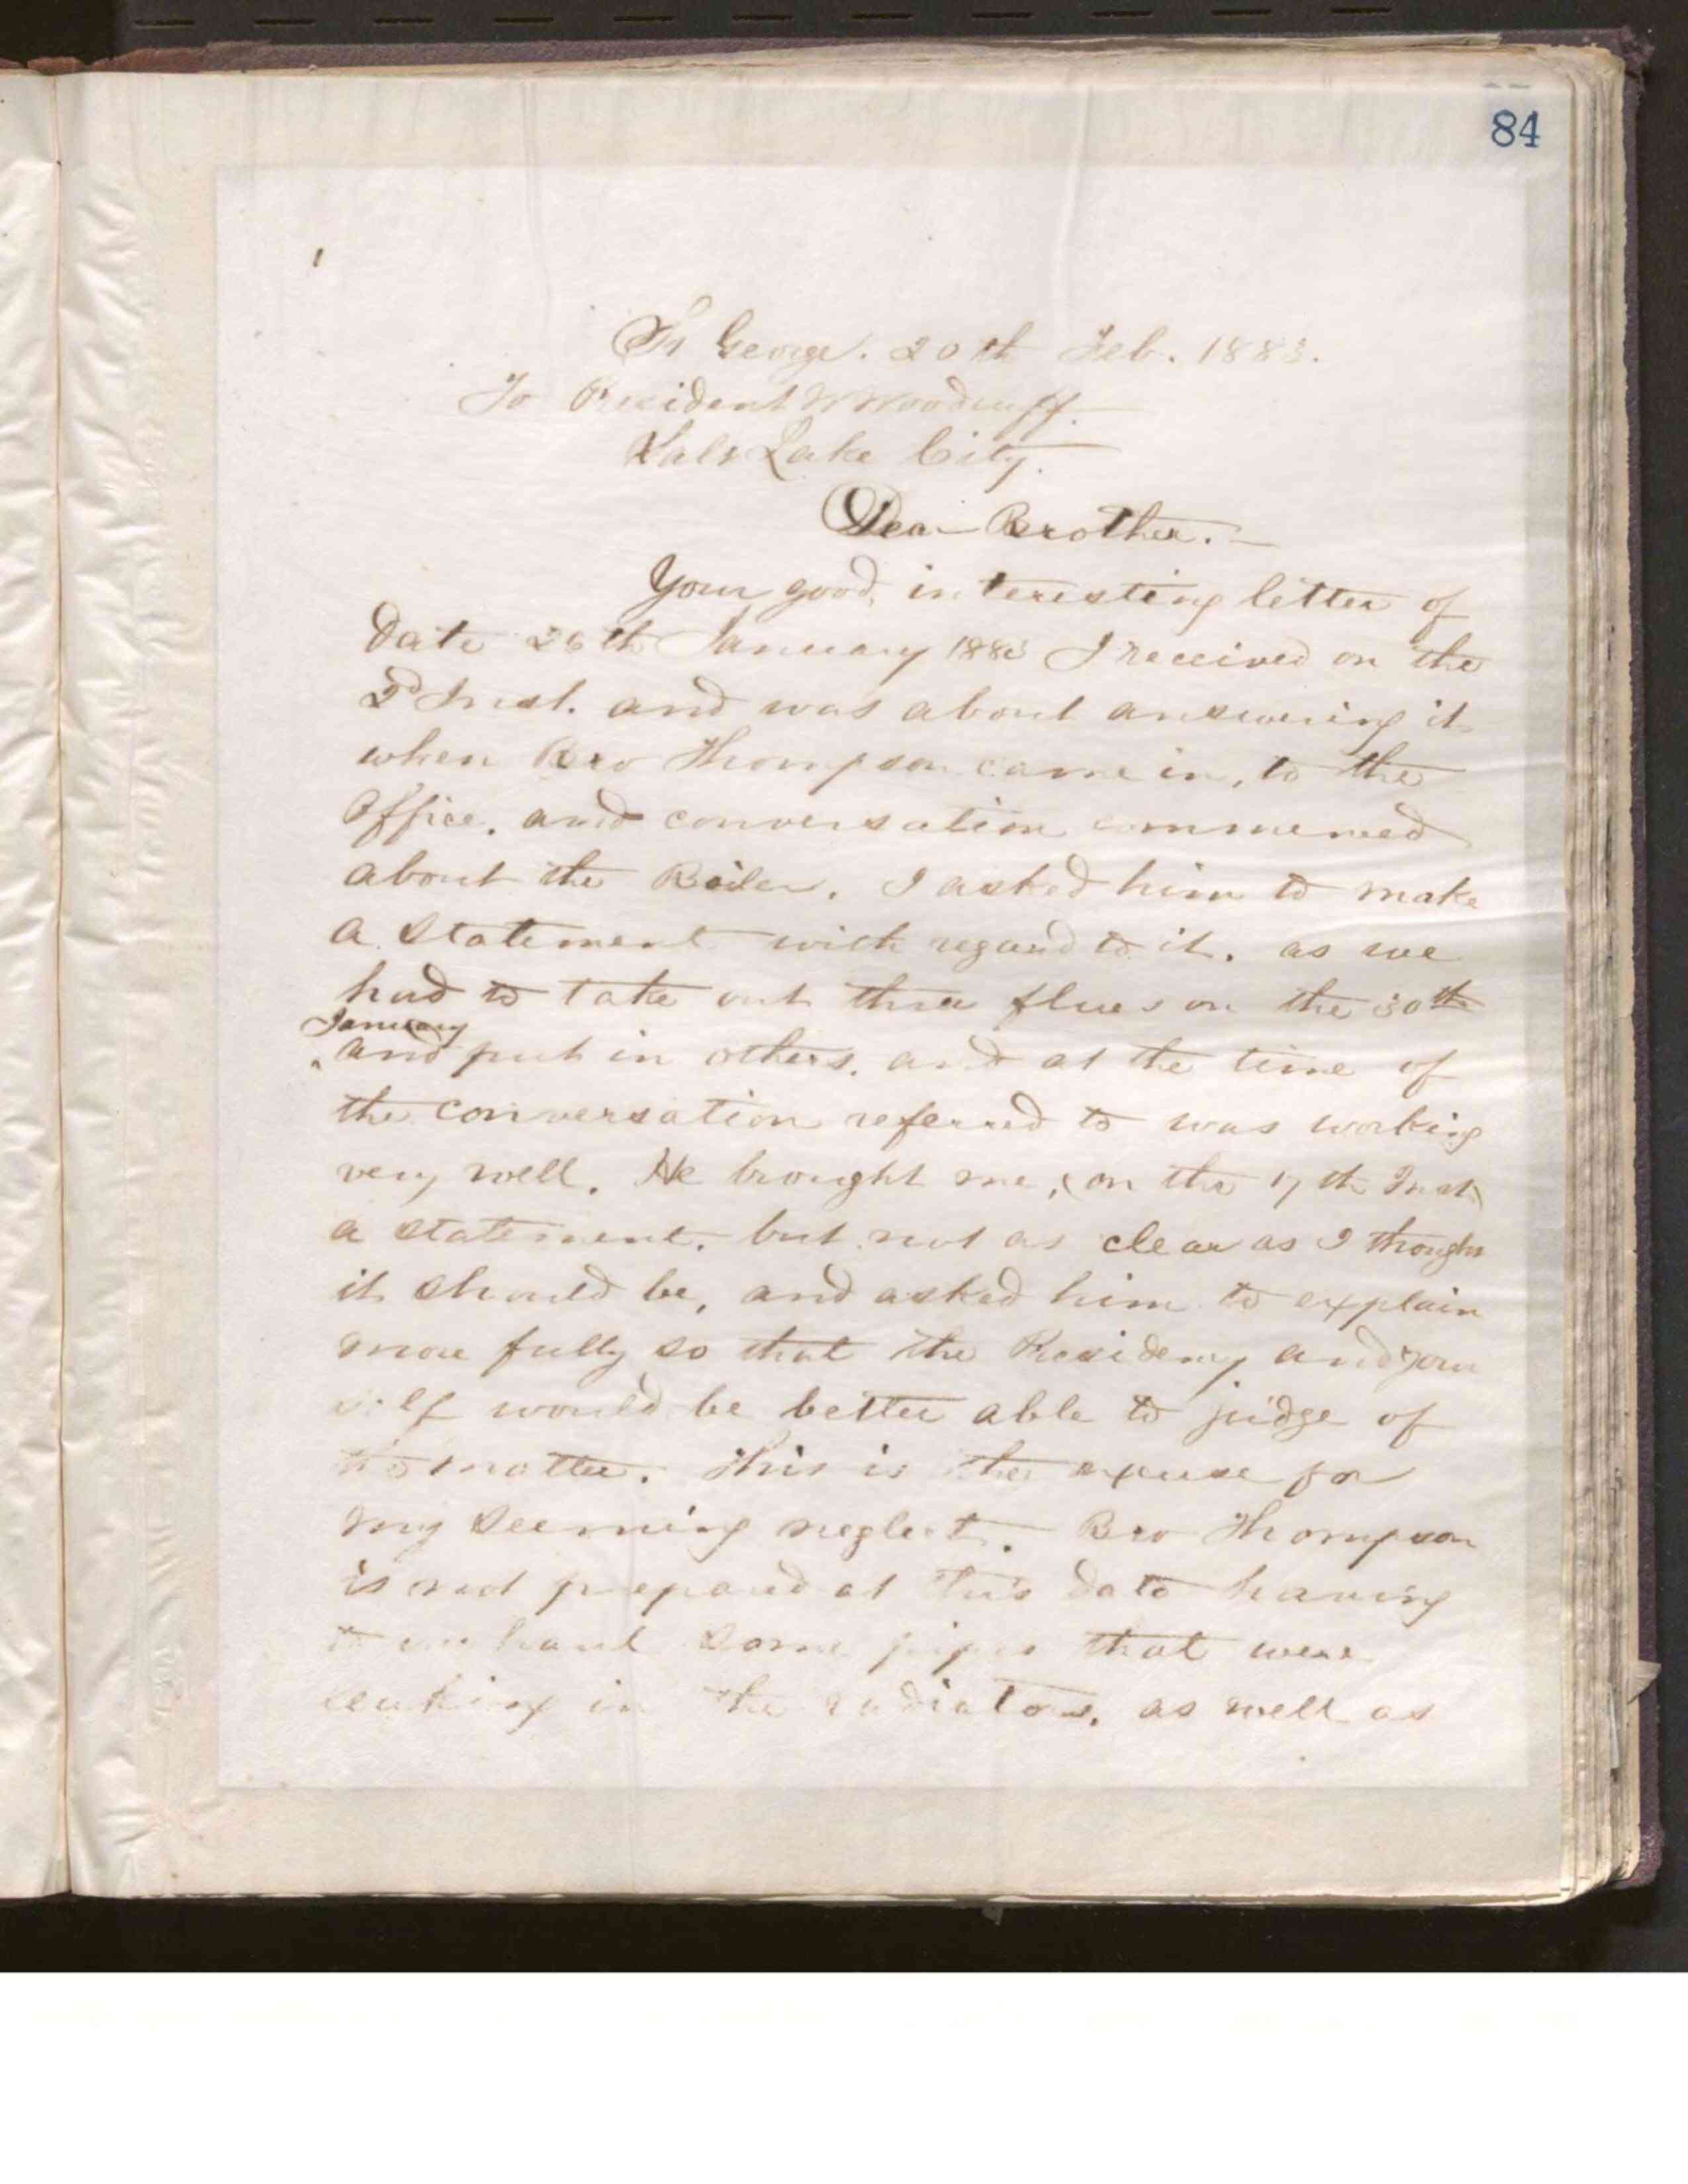 84
St George. 20th Feb. 1883.
To President W Woodruff.
Salt Lake City.
Dear Brother.
Your good, interesting letter of
date 26th January 1883 I received on the
2d Inst. and was about answering it
when Bro Thompson came in, to the
Office, and conversation commenced
about the Boiler. I asked him to make
a statement with regard to it. as we
had to take out three flues on the 30th
January
and put in others, and at the time of
the conversation referred to was working
very well. He brought me, (on the 17th Inst)
a statement. but not as clear as I thought
it should be, and asked him to explain
more fully so that the Presidency and your
self would be better able to judge of
the matter. This is the excuse for
my seeming neglect. Bro Thompson
is not prepared at this date having
to overhaul some pipes that were
leaking in the radiators, as well as